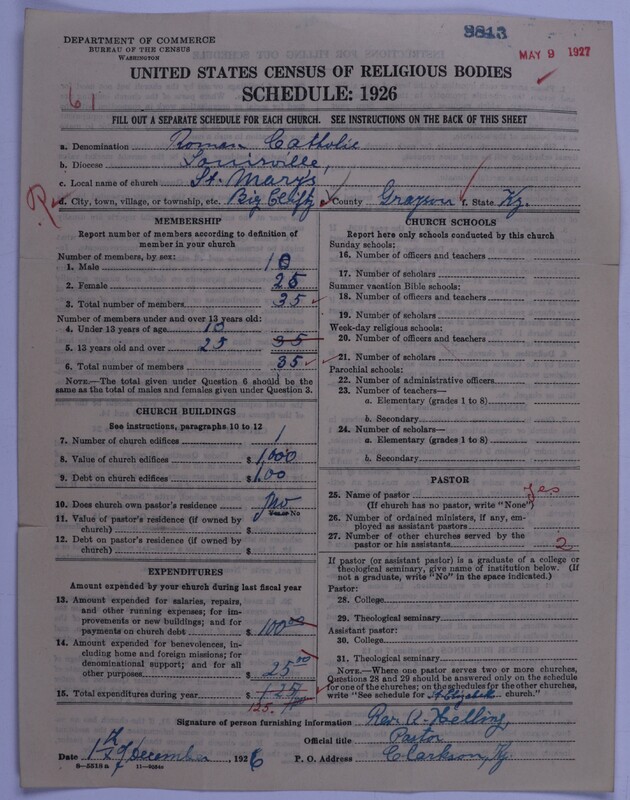 DEPARTMENT OF COMMERCE
BUREAU OF THE CENSUS
WASHINGTON
8813
MAY 9 1927
UNITED STATES CENSUS OF RELIGIOUS BODIES
SCHEDULE: 1926
61
FILL OUT A SEPARATE SCHEDULE FOR EACH CHURCH. SEE INSTRUCTIONS ON THE BACK OF THIS SHEET
a. Denomination Roman Catholic
b. Diocese Louisville,
c. Local name of church St. Marys
d. City, town, village, or township, etc. Big Clifty County Grayson f. State Ky.
MEMBERSHIP
Report number of members according to definition of member in your church
Number of members, by sex:
1. Male 10
2. Female 25
3. Total number of members 35
Number of members under and over 13 years old:
4. Under 13 years of age 10
5. 13 years old and over 25 35
6. Total number of members 35
NOTE.—The total given under Question 6 should be the same as the total of males and females given under Question 3.
CHURCH BUILDINGS
See instructions, paragraphs 10 to 12
7. Number of church edifices 1
8. Value of church edifices $ 1,000
9. Debt on church edifices $ 1,00
10. Does church own pastor's residence No
Yes or No
11. Value of pastor's residence (if owned by church) $
12. Debt on pastor's residence (if owned by church) $
EXPENDITURES
Amount expended by your church during last fiscal year
13. Amount expended for salaries, repairs, and other running expenses; for improvements or new buildings; and for payments on church debt $ 100.00
14. Amount expended for benevolences, including home and foreign missions; for denominational support; and for all other purposes $ 25.00
15. Total expenditures during year $ 125
125.
CHURCH SCHOOLS
Report here only schools conducted by this church
Sunday schools:
16. Number of officers and teachers
17. Number of scholars
Summer vacation Bible schools:
18. Number of officers and teachers
19. Number of scholars
Week-day religious schools:
20. Number of officers and teachers
21. Number of scholars
Parochial schools:
22. Number of administrative officers
23. Number of teachers—
a. Elementary (grades 1 to 8)
b. Secondary
24. Number of scholars—
a. Elementary (grades 1 to 8)
b. Secondary
PASTOR
25. Name of pastor yes
(If church has no pastor, write "None")
26. Number of ordained ministers, if any, employed as assistant pastors
27. Number of other churches served by the pastor or his assistants 2
If pastor (or assistant pastor) is a graduate of a college or theological seminary, give name of institution below. (If not a graduate, write "No" in the space indicated.)
Pastor:
28. College
29. Theological seminary
Assistant pastor:
30. College
31. Theological seminary
NOTE.—Where one pastor serves two or more churches, Questions 28 and 29 should be answered only on the schedule for one of the churches; on the schedules for the other churches, write "See schedule for St Elizabeth church."
Signature of person furnishing information Rev. A. Helling,
Official title Pastor
Date 1st of December, 1926 P. O. Address Clarkson, Ky
8—5518a 11—9054a